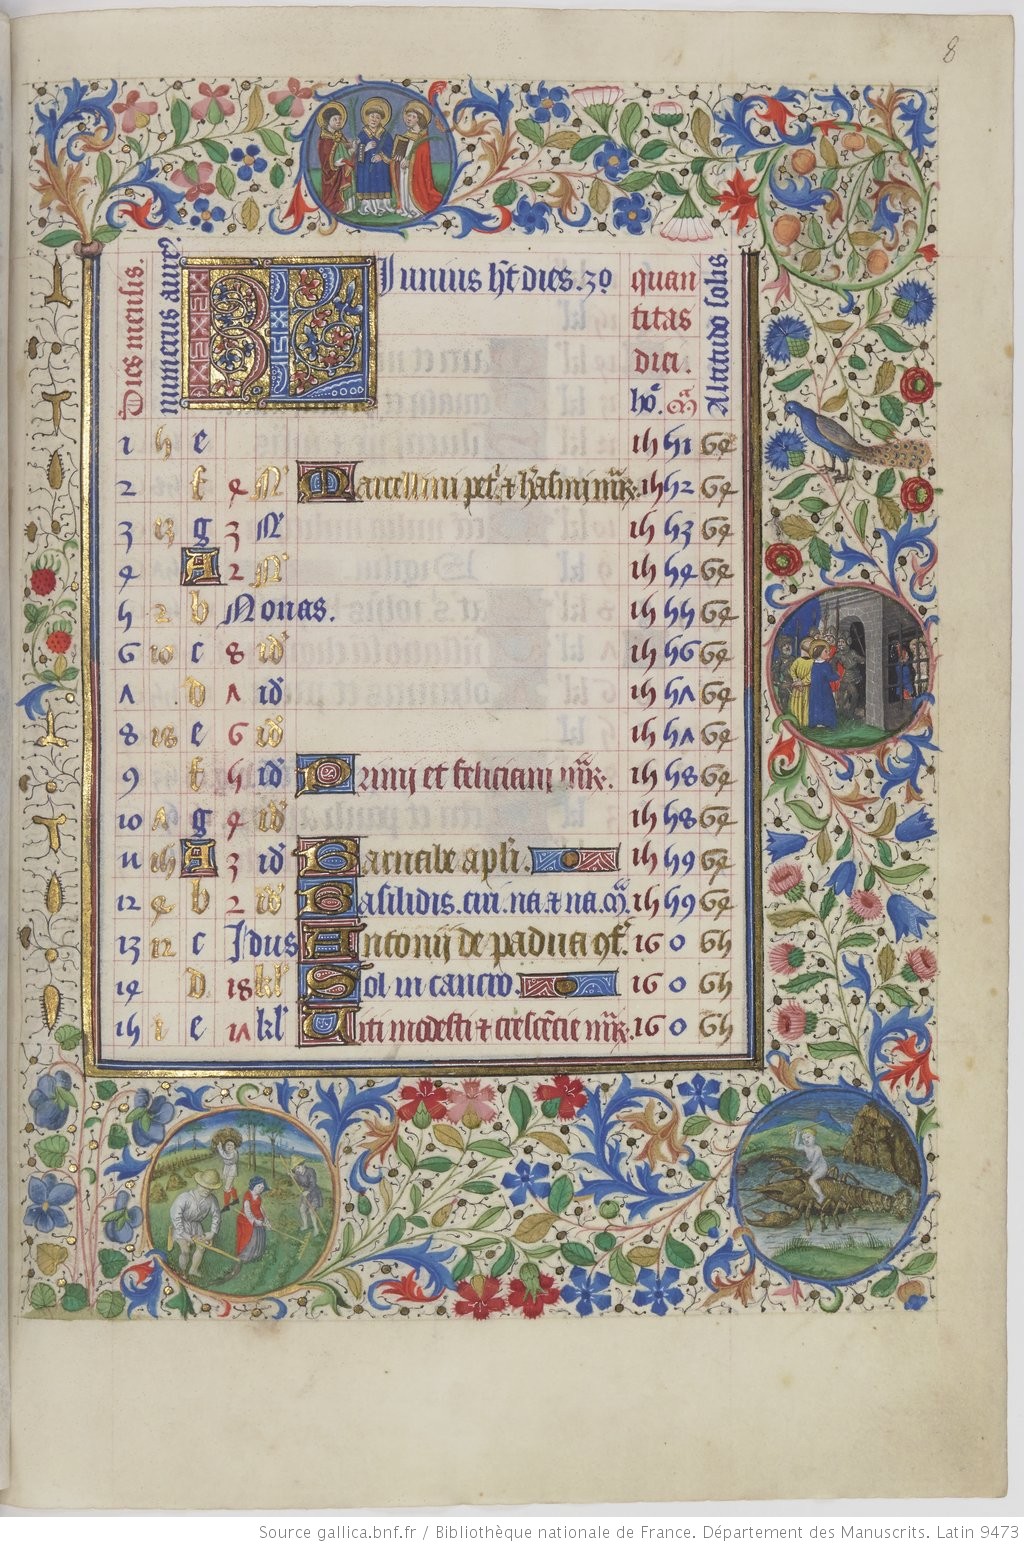 8
Dies mensis.
numerus aure9
KL
Junius ht dies. 30
quan
titas
diei.
ho. m
Altitudo solis
1 h e 15 51 64
2 f 4 N Marcellini pet' & hasmi mr. 15 52 64
3 13 g 3 N 15 53 64
4 A 2 N 15 54 64
5 2 b Nonas. 15 55 64
6 10 c 8 id 15 56 64
7 D 7 id 15 57 64
8 18 e 6 id 15 57 64
9 f 5 id Primi et feliciani mr. 15 58 64
10 7 g 4 id 15 58 64
11 15 A 3 id Barnabe apli. 15 59 64
12 4 b 2 id Basilidis. ciri. na & na. m. 15 59 64
13 12 c Idus Antonii de padua gf. 16 0 65
14 D 18 kl Sol in cancro. 16 0 65
15 1 e 17 kl Viti modesti & crescecie mr. 16 0 65
Source gallica.bnf.fr / Bibliothèque nationale de France. Département des Manuscrits. Latin 9473